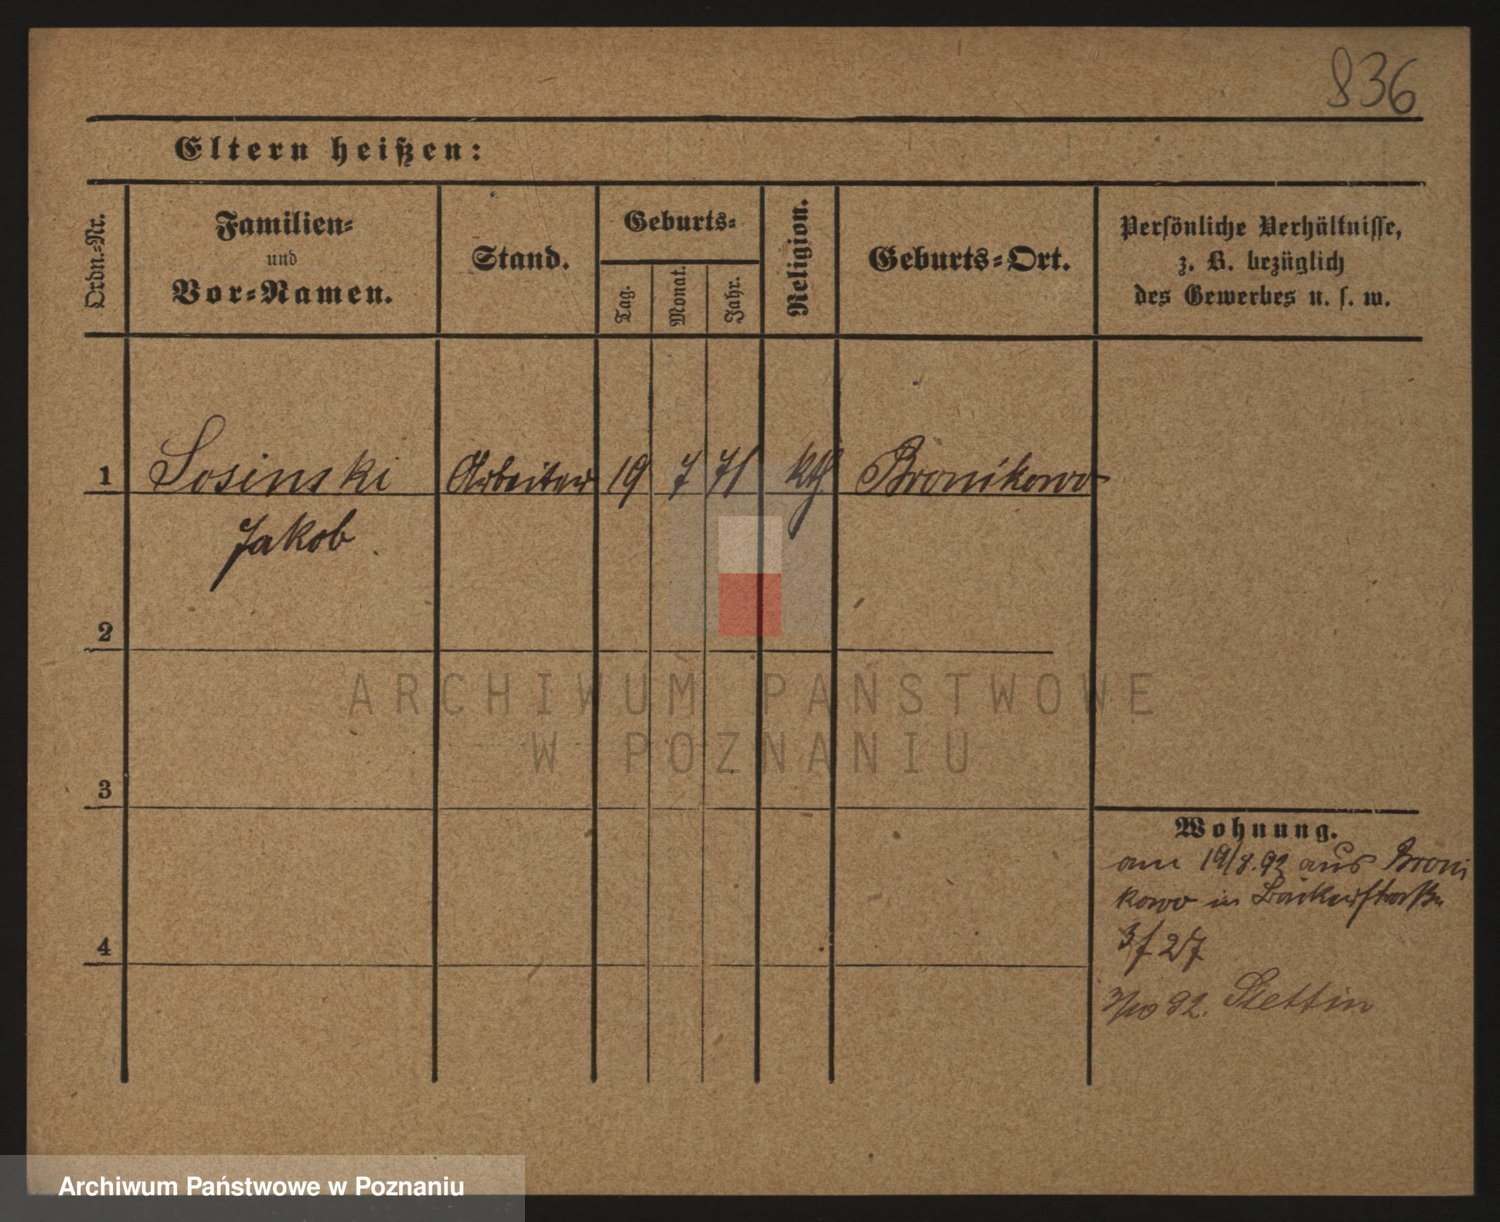 836
Eltern heißen:
Ordn.-Nr.
Familien-
und
Vor-Namen.
Stand.
Geburts-
Tag.
Monat.
Jahr.
Religion.
Geburts-Ort.
Persönliche Verhältnisse,
z. B. bezüglich
des Gewerbes u. s. w.
1 Losinski Arbeiter 19 7 71 kth Bronikowo
Jakob
2
3
4
Wohnung.
am 19/8.92 aus Broni
kowo in Bäckerstraße
27
92. Stettin
ARCHIWUM PAŃSTWOWE
W POZNANIU
Archiwum Państwowe w Poznaniu